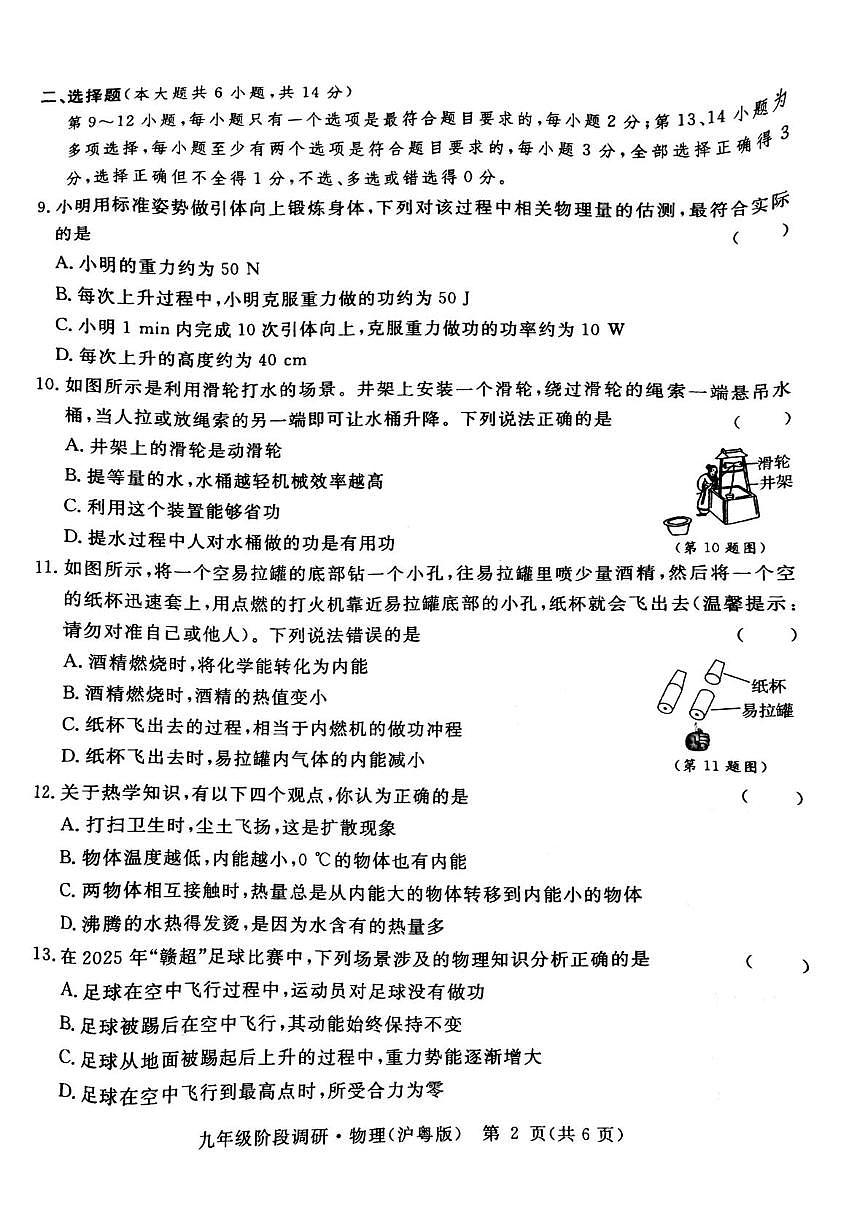 二、选择题(本大题共 6 小题,共 14 分)
第 9～12 小题,每小题只有一个选项是最符合题目要求的,每小题 2 分;第 13、14 小题为
多项选择,每小题至少有两个选项是符合题目要求的,每小题 3 分,全部选择正确得 3
分,选择正确但不全得 1 分,不选、多选或错选得 0 分。
9. 小明用标准姿势做引体向上锻炼身体,下列对该过程中相关物理量的估测,最符合实际
的是 ( )
A. 小明的重力约为 50 N
B. 每次上升过程中,小明克服重力做的功约为 50 J
C. 小明 1 min 内完成 10 次引体向上,克服重力做功的功率约为 10 W
D. 每次上升的高度约为 40 cm
10. 如图所示是利用滑轮打水的场景。井架上安装一个滑轮,绕过滑轮的绳索一端悬吊水
桶,当人拉或放绳索的另一端即可让水桶升降。下列说法正确的是 ( )
A. 井架上的滑轮是动滑轮
B. 提等量的水,水桶越轻机械效率越高
C. 利用这个装置能够省功
D. 提水过程中人对水桶做的功是有用功
滑轮
井架
(第 10 题图)
11. 如图所示,将一个空易拉罐的底部钻一个小孔,往易拉罐里喷少量酒精,然后将一个空
的纸杯迅速套上,用点燃的打火机靠近易拉罐底部的小孔,纸杯就会飞出去(温馨提示:
请勿对准自己或他人)。下列说法错误的是 ( )
A. 酒精燃烧时,将化学能转化为内能
B. 酒精燃烧时,酒精的热值变小
C. 纸杯飞出去的过程,相当于内燃机的做功冲程
D. 纸杯飞出去时,易拉罐内气体的内能减小
纸杯
易拉罐
(第 11 题图)
12. 关于热学知识,有以下四个观点,你认为正确的是 ( )
A. 打扫卫生时,尘土飞扬,这是扩散现象
B. 物体温度越低,内能越小,0 ℃的物体也有内能
C. 两物体相互接触时,热量总是从内能大的物体转移到内能小的物体
D. 沸腾的水热得发烫,是因为水含有的热量多
13. 在 2025 年“赣超”足球比赛中,下列场景涉及的物理知识分析正确的是 ( )
A. 足球在空中飞行过程中,运动员对足球没有做功
B. 足球被踢后在空中飞行,其动能始终保持不变
C. 足球从地面被踢起后上升的过程中,重力势能逐渐增大
D. 足球在空中飞行到最高点时,所受合力为零
九年级阶段调研·物理(沪粤版) 第 2 页(共 6 页)